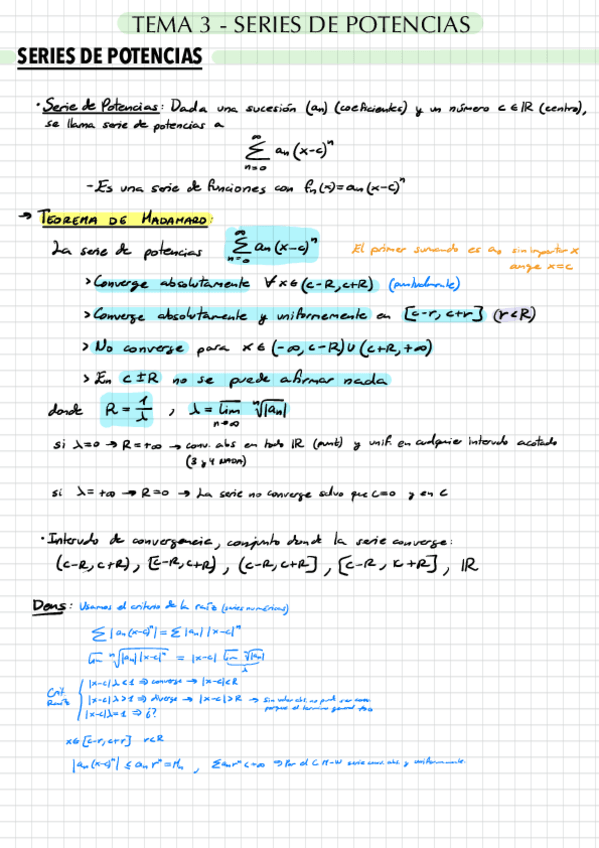 TEMA 3 - SERIES DE POTENCIAS
SERIES DE POTENCIAS
· Serie de Potencias: Dada una sucesión (an) (coeficientes) y un número c ∈ IR (centro),
se llama serie de potencias a
∞ Σ n=0 an (x-c)^n
- Es una serie de funciones con fn(x) = an (x-c)^n
→ TEOREMA DE HADAMARD:
La serie de potencias ∞ Σ n=0 an (x-c)^n El primer sumando es a0 sin importar x
aunque x=c
> Converge absolutamente ∀ x ∈ (c-R, c+R) (puntualmente)
> Converge absolutamente y uniformemente en [c-r, c+r] (r<R)
> No converge para x ∈ (-∞, c-R) ∪ (c+R, +∞)
> En c±R no se puede afirmar nada
donde R = 1/λ , λ = lim n→∞ ⁿ√|an|
si λ=0 → R=+∞ → conv. abs en todo IR (punt) y unif. en cualquier intervalo acotado
(3 y 4 NADA)
si λ=+∞ → R=0 → La serie no converge salvo que c=0 y en c
· Intervalo de convergencia, conjunto donde la serie converge:
(c-R, c+R) , [c-R, c+R) , (c-R, c+R] , [c-R, c+R] , IR
Dems: Usamos el criterio de la raíz (series numéricas)
Σ |an (x-c)^n| = Σ |an| |x-c|^n
lim ⁿ√|an| |x-c|^n = |x-c| lim ⁿ√|an|
λ
Crit Raíz
|x-c| λ < 1 ⇒ converge → |x-c| < R
|x-c| λ > 1 ⇒ diverge → |x-c| > R → Sin valor abs. no puede ser conv.
porque el termino general ↛ 0
|x-c| λ = 1 ⇒ ¿?
x ∈ [c-r, c+r] r<R
|an (x-c)^n| ≤ an r^n = Mn , Σ an r^n < +∞ ⇒ Por el C M-W serie conv. abs. y uniformemente.